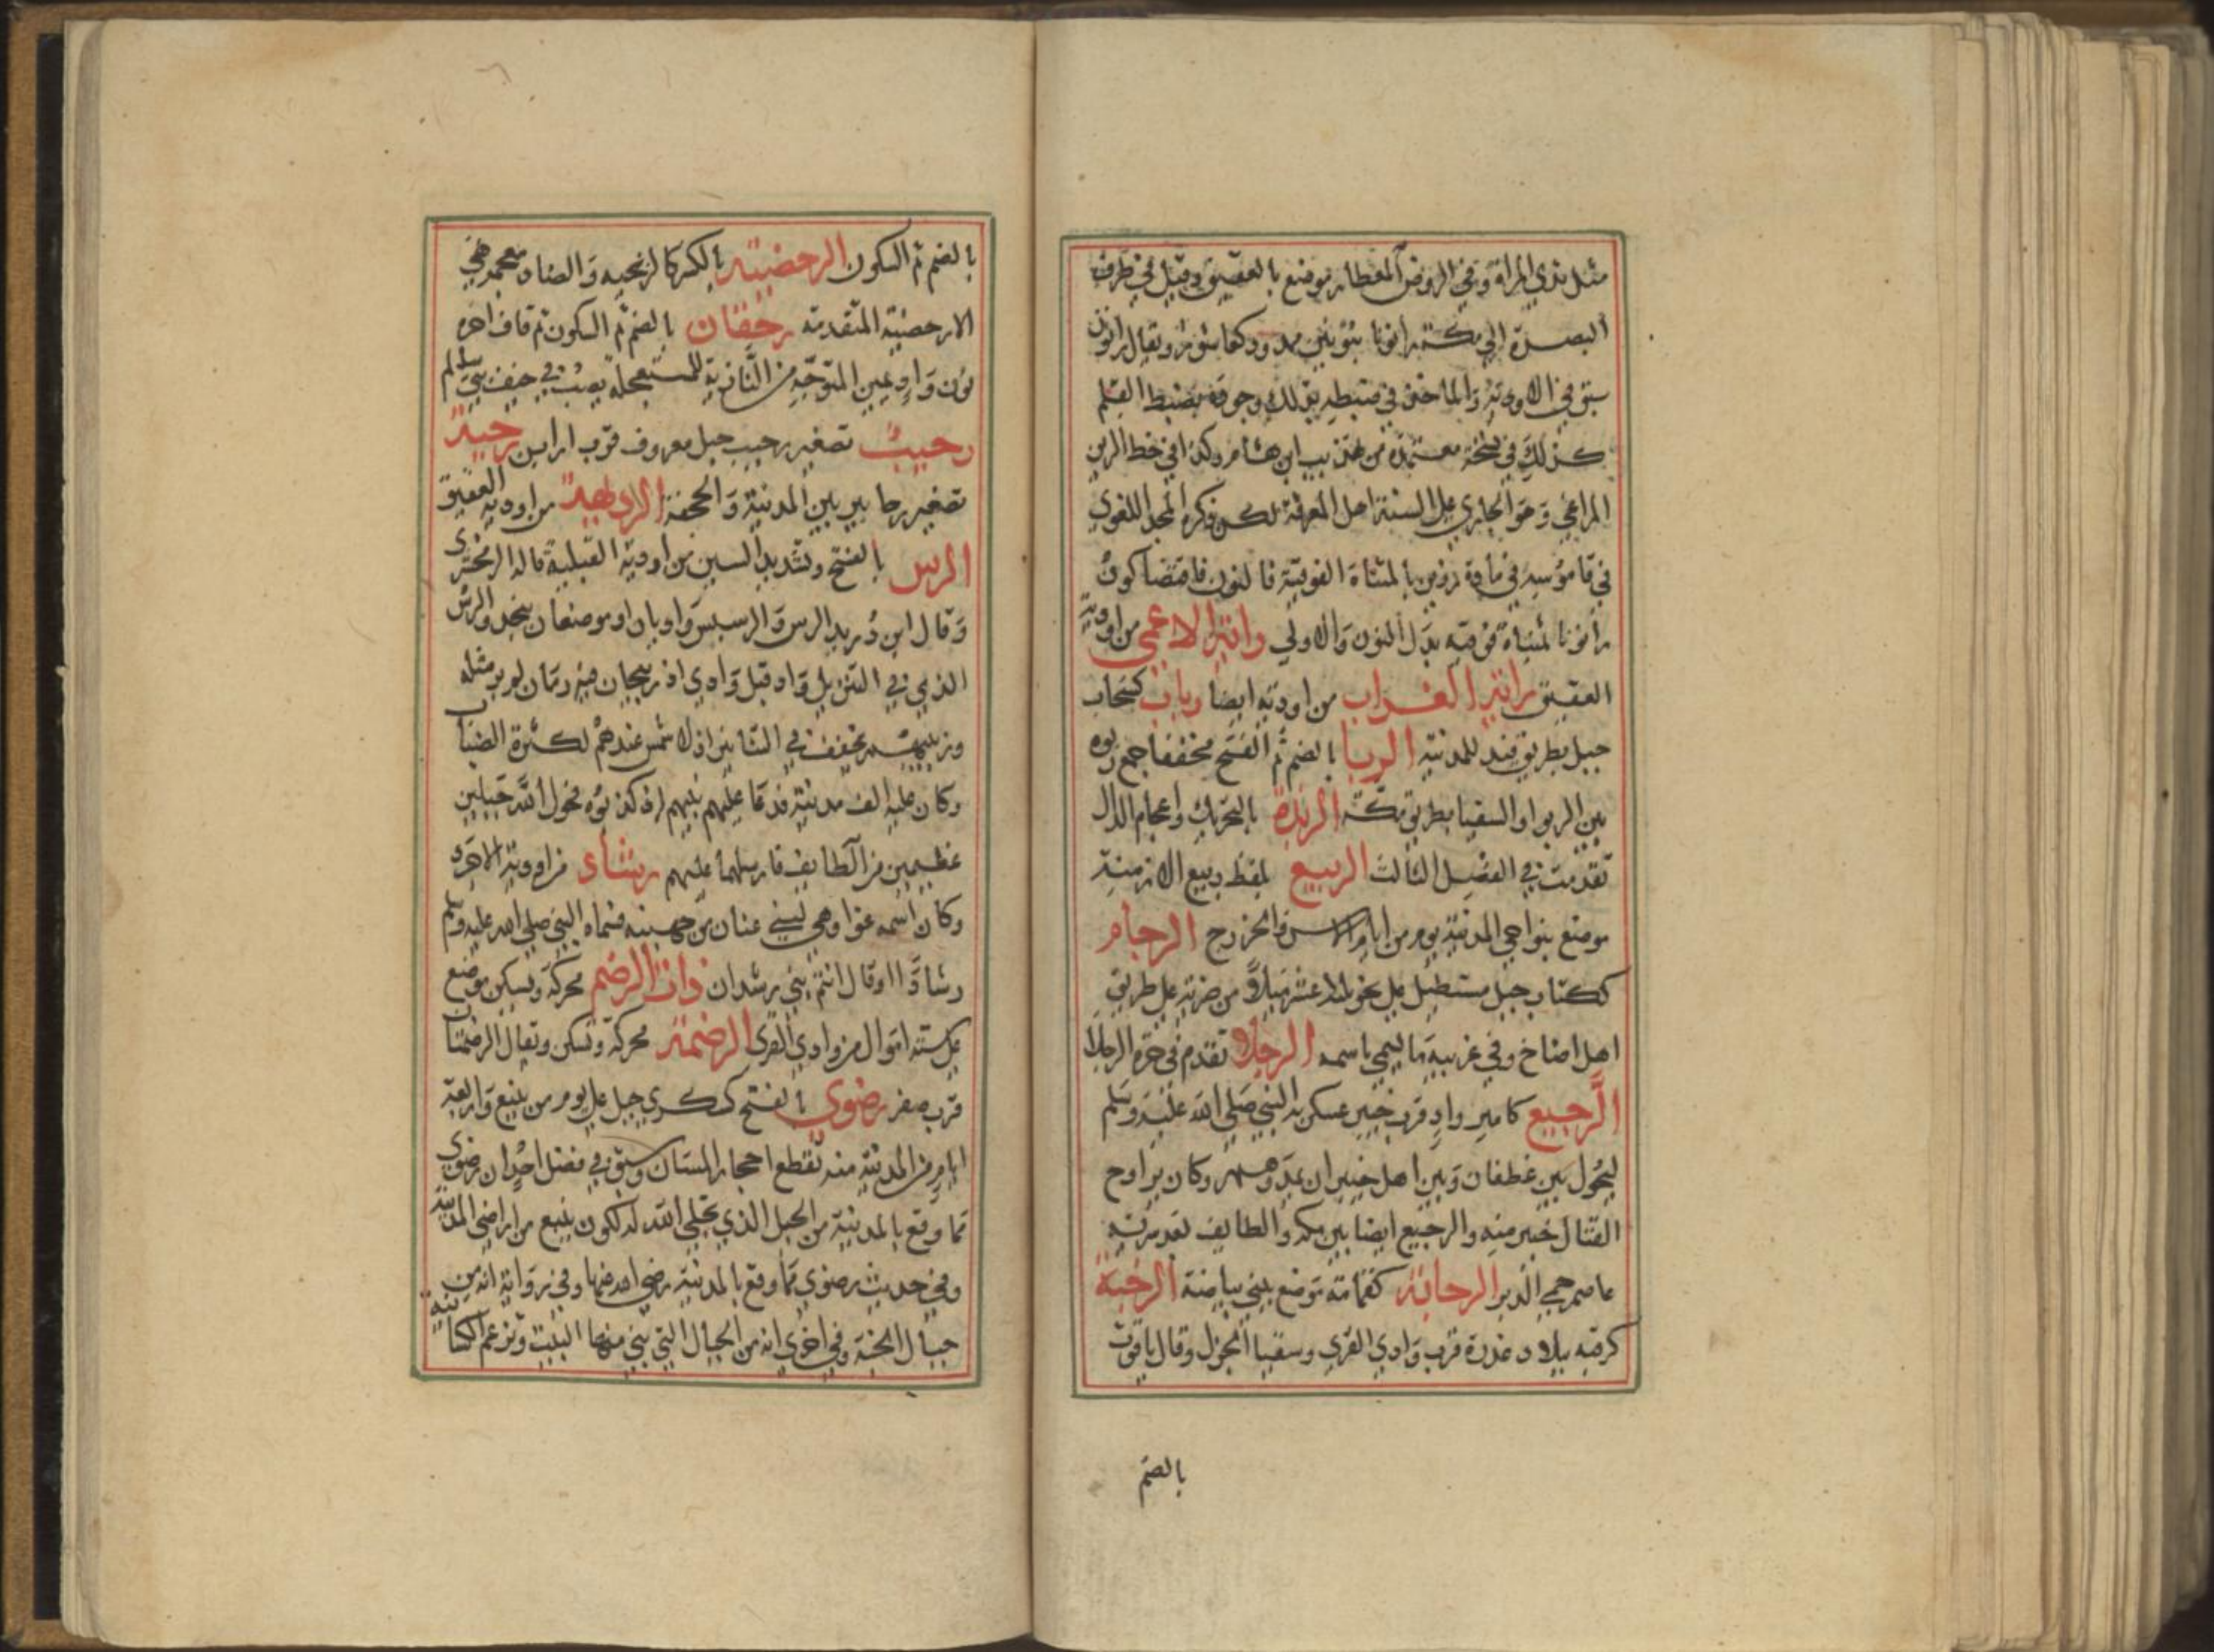 مثل ثدي المراة وفي الروض المعطار موضع بالعقيق وقيل في طرف
البصرة الي مكة رانونا بنونين ممدود كعاشورا ويقال رانون
سبق في الاودية والماخنق في ضبطه بذلك وجوفه بضبط القلم
كذلك في نسخة معتمدة من تهذيب ابن هشام وكذا في خط الزين
المراغي وهو الجاري علي السنة اهل المعرفة لكن ذكره المجد اللغوي
في قاموسه في مادة بالمثناة الفوقية فالنون فاقتضا كون
رانونا لمثناة فوقيه بدل النون والاولي راتج الاعمي من اودية
العقيق الغراب من اوديه ايضا رباب كسحاب
جبل بطريق فيد للمدينة الربا بالضم ثم الفتح مخففا جمع ربوه
بين الربوا والسقيا بطريق مكة الربذة بالتحريك واعجام الذال
تقدمت في الفصل الثالث الربيع بلفظ ربيع الازمنة
موضع بنواحي المدينة يوم من ايام الاوس والخزرج الرجام
ككتاب جبل مستطيل علي نحو ثلاثة عشر ميلا من ضريه علي طريق
اهل اضاخ وفي غربيه ما يسمي باسمه الرجلا تقدم في حرة الرجلا
الرجيع كامير واد قرب خيبر عسكر به النبي صلي الله عليه وسلم
ليحول بين غطفان وبين اهل خيبر ان يمدوهم وكان يراوح
القتال خيبر منه والرجيع ايضا بين مكه والطايف لغد سرية
عاصم حمي الدبر الرحابة كقمامة موضع ببني بياضة الرحبة
كرقبه ببلاد عذرة قرب وادي القري وسقيا الجزل وقال ياقوت
بالضم
بالضم ثم السكون الرحضية بالكسر كالزنجيه والضاد معجمه هي
الارحضية المتقدمة رحقان بالضم ثم السكون ثم قاف اخره
نون واد عن يمين المتوجه من النازية للمستعجلة يصب في خيف بني سالم
رحيب تصغير رحيب جبل معروف قرب ارابن رحية
تصغير رحا بير بين المدينة والجحفة من اودية العقيق
الرس بالفتح وتشديد السين من اودية القبلية قاله الزمخشري
وقال ابن دريد الرس والرسيس واديان او موضعان بنجد والرس
الذي في التنزيل واد قبل وادي اذربيجان فيه رمان لم ير مثله
وزبيبهم يجفف في التنانير اذ لا شمس عندهم لكثرة الضباب
وكان عليه الف مدينة فدعا عليهم نبيهم اذ كذبوه فحول الله جبلين
عظيمين من الطايف فارسلهما عليهم رشاد من اودية الاجرد
وكان اسمه غوا وهي لبني عنان من جهينه فسماه النبي صلي الله عليه وسلم
رشادا وقال انتم بني رشدان ذات الرضم محركة وتسكن موضع
علي ستة اميال من وادي القري الرضمة محركة وتسكن ويقال الرضمتان
قرب صفر رضوي بالفتح كسكري جبل علي يوم من ينبع واربعة
ايام من المدينة منه تقطع احجار المسان وسبق في فضل احد ان رضوي
مما وقع بالمدينة من الجبل الذي تجلي الله له لكون ينبع من اراضي المدينة
وفي حديث رضوي مما وقع بالمدينة رضي الله عنها وفي رواية انه من
جبال الجنة وفي اخري انه من الجبال التي بني منها البيت وتزعم الكسانية